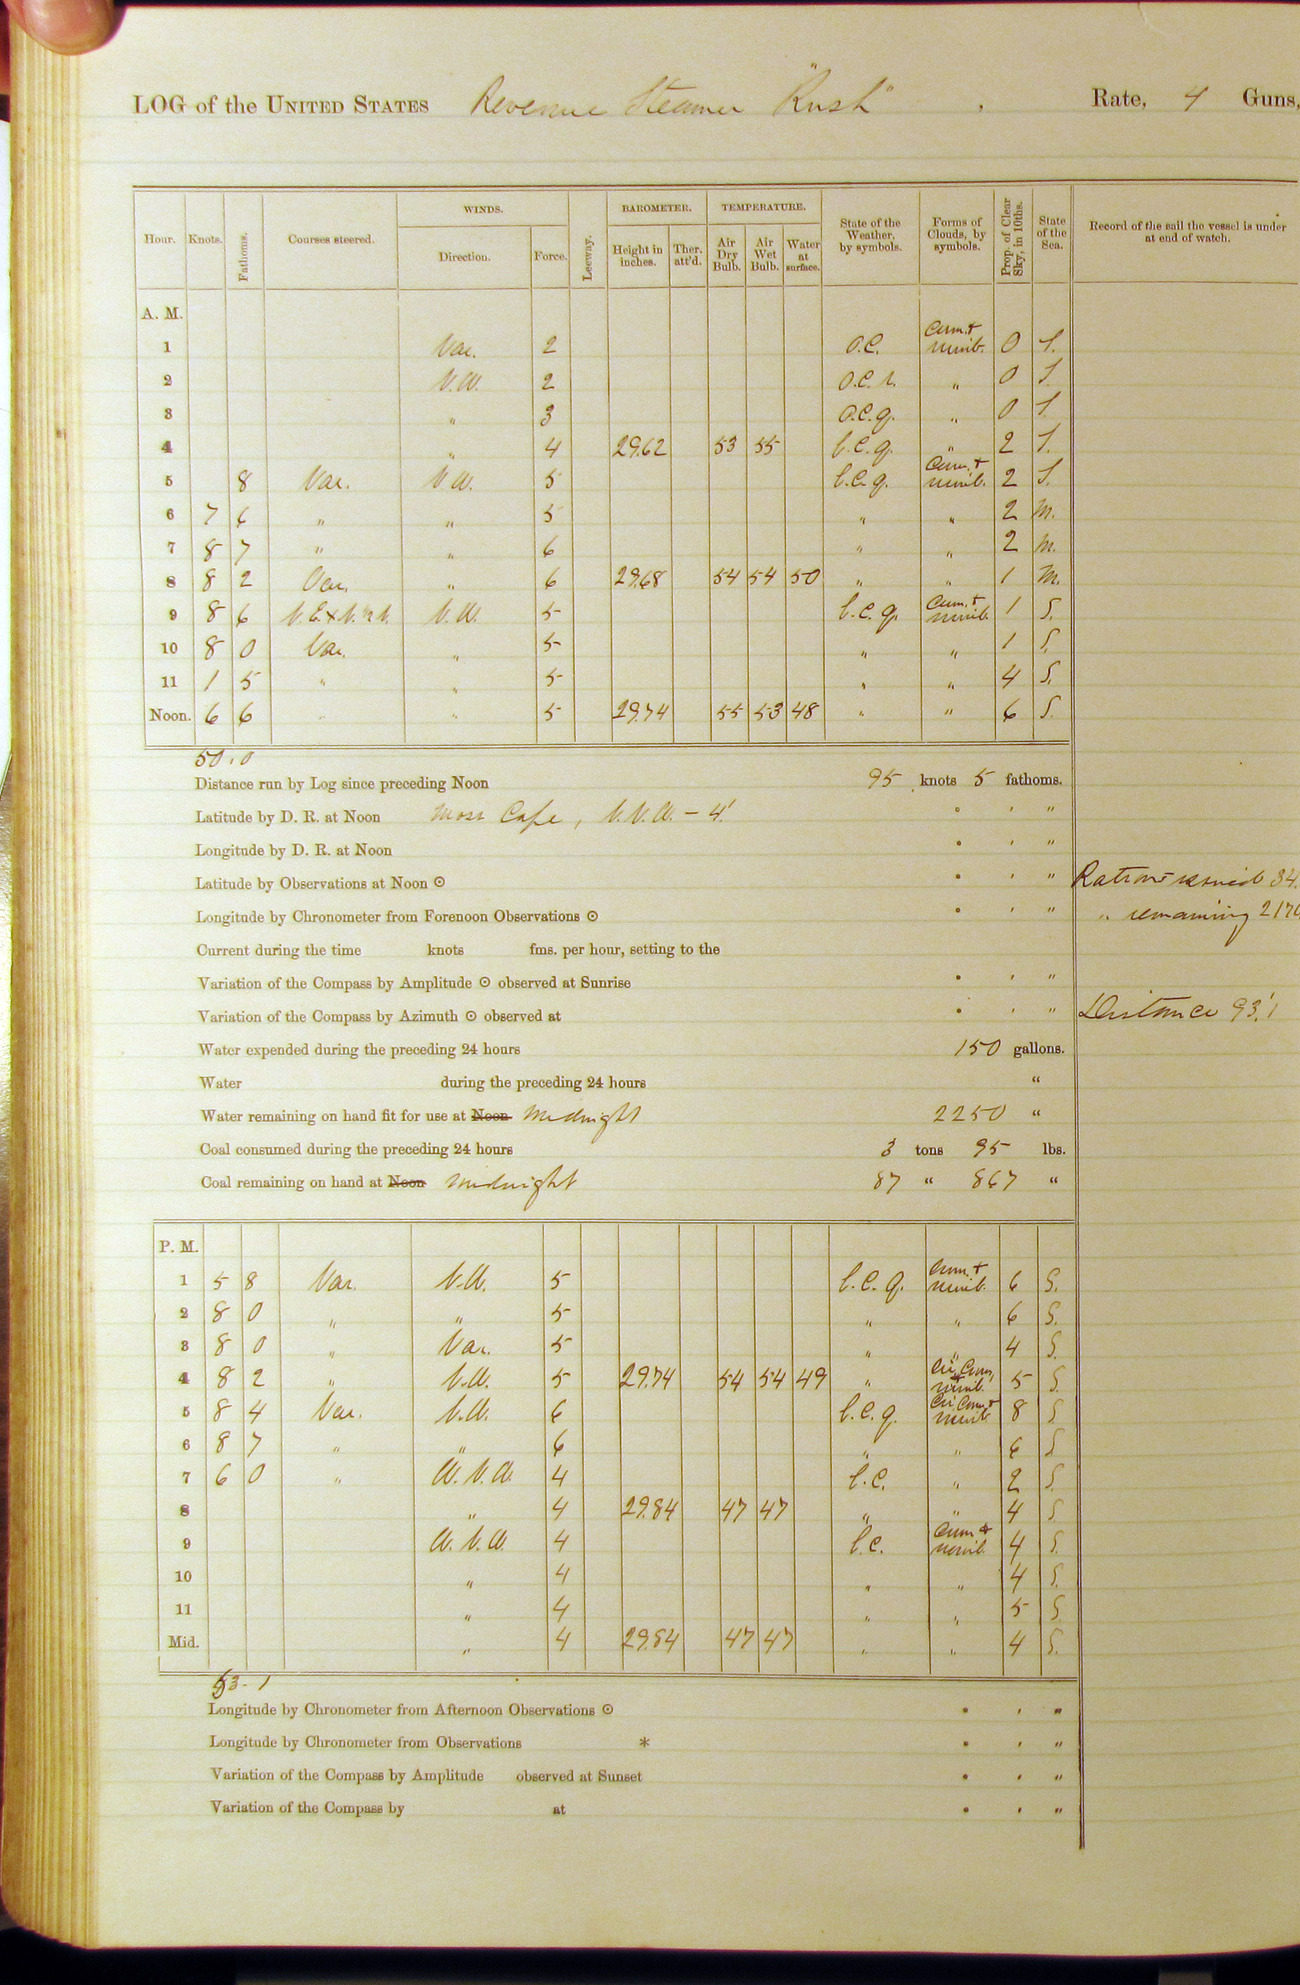 LOG of the UNITED STATES Revenue Steamer "Rush", Rate, 4 Guns,
Hour. Knots. Fathoms. Courses steered. WINDS. Direction. Force. Leeway. BAROMETER. Height in inches. Ther. att'd. TEMPERATURE. Air Dry Bulb. Air Wet Bulb. Water at surface. State of the Weather, by symbols. Forms of Clouds, by symbols. Prop. of Clear Sky, in 10ths. State of the Sea. Record of the sail the vessel is under at end of watch.
A. M.
1 Var. 2 O.C. Cum. + nimb. 0 S.
2 N.W. 2 O.C. r. " 0 S.
3 " 3 O.C.q. " 0 S.
4 " 4 29.62 53 55 b.c.q. " 2 S.
5 8 Var. N.W. 5 b.c.q. Cum. + nimb. 2 S.
6 7 6 " " 5 " " 2 M.
7 8 7 " " 6 " " 2 M.
8 8 2 Var. " 6 29.68 54 54 50 " " 1 M.
9 8 6 N.E. + N.W. N.W. 5 b.c.q. Cum. + nimb. 1 S.
10 8 0 Var. " 5 " " 1 S.
11 1 5 " " 5 " " 4 S.
Noon. 6 6 " " 5 29.74 55 53 48 " " 6 S.
50.0
Distance run by Log since preceding Noon 95 knots 5 fathoms.
Latitude by D. R. at Noon Moss Cape, N.N.W. - 4' ° ' "
Longitude by D. R. at Noon ° ' "
Latitude by Observations at Noon ⊙ ° ' " Rations issued 34
Longitude by Chronometer from Forenoon Observations ⊙ ° ' " " remaining 2170
Current during the time knots fms. per hour, setting to the
Variation of the Compass by Amplitude ⊙ observed at Sunrise ° ' "
Variation of the Compass by Azimuth ⊙ observed at ° ' " Distance 93.'1
Water expended during the preceding 24 hours 150 gallons.
Water during the preceding 24 hours "
Water remaining on hand fit for use at Noon Midnight 2250 "
Coal consumed during the preceding 24 hours 3 tons 95 lbs.
Coal remaining on hand at Noon Midnight 87 " 867 "
P. M.
1 5 8 Var. N.W. 5 b.c.q. Cum. + nimb. 6 S.
2 8 0 " " 5 " " 6 S.
3 8 0 " Var. 5 " " 4 S.
4 8 2 " N.W. 5 29.74 54 54 49 " Cir. Cum. + nimb. 5 S.
5 8 4 Var. N.W. 6 b.c.q. Cir. Cum. + nimb. 8 S
6 8 7 " " 6 " " 6 S
7 6 0 " W.N.W. 4 b.c. " 2 S.
8 " 4 29.84 47 47 " " 4 S.
9 W.N.W. 4 b.c. Cum. + nimb. 4 S.
10 " 4 " " 4 S.
11 " 4 " " 5 S.
Mid. " 4 29.84 47 47 " " 4 S.
53.1
Longitude by Chronometer from Afternoon Observations ⊙ ° ' "
Longitude by Chronometer from Observations * ° ' "
Variation of the Compass by Amplitude observed at Sunset ° ' "
Variation of the Compass by at ° ' "